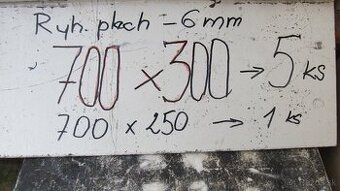 Ryh. plech - 6 mm
700 x 300 → 5 ks
700 x 250 → 1 ks